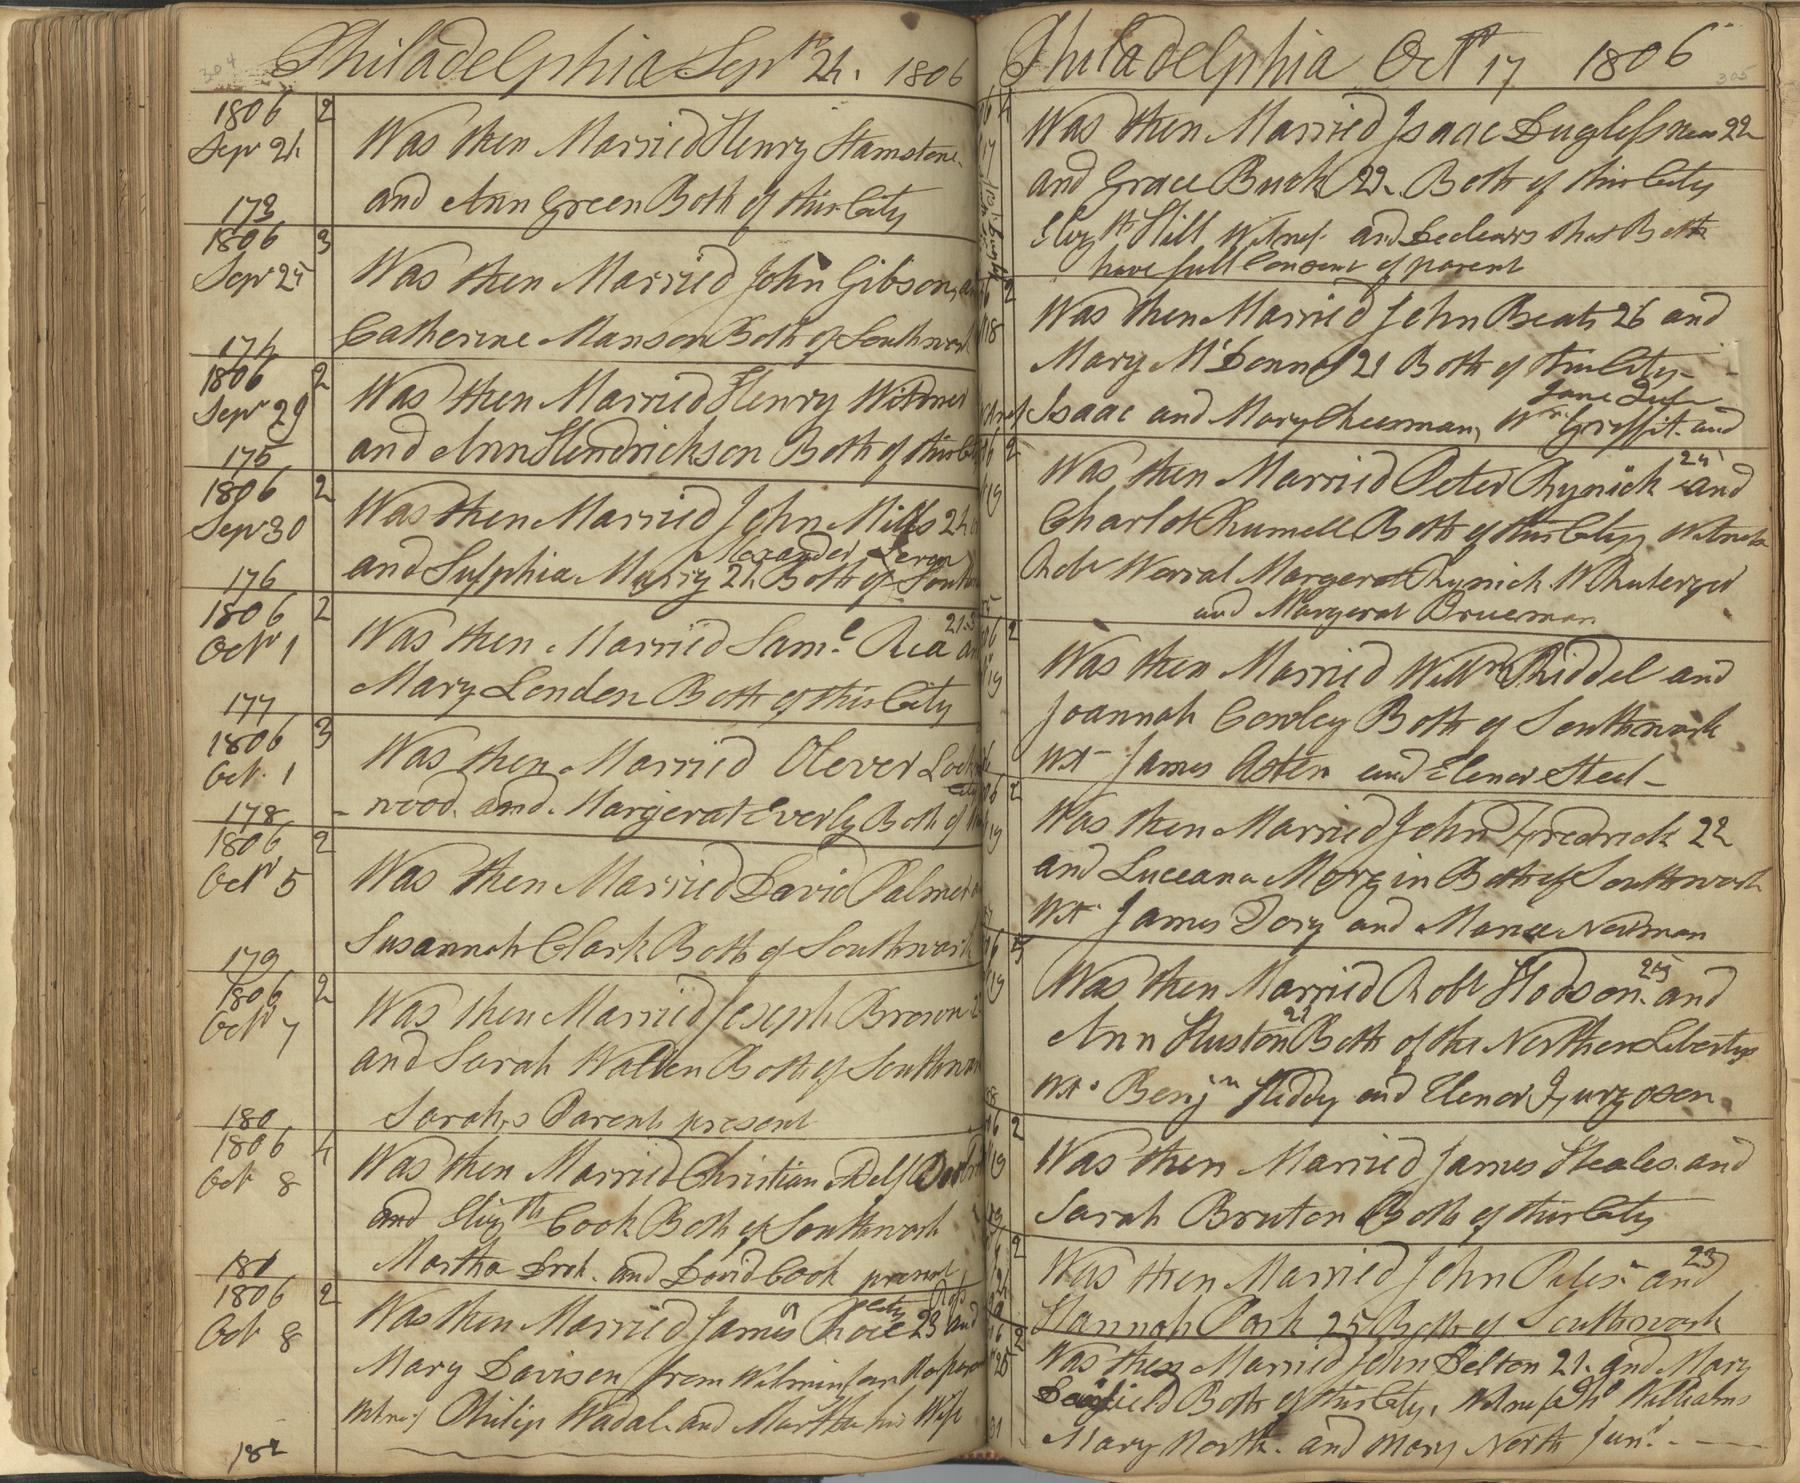 304
Philadelphia Sepr 24. 1806
1806 2
Sepr 24
Was then Married Henry Hamstone
and Ann Green Both of this City
173
1806 3
Sepr 25
Was then Married John Gibson, an
Catherine Manson Both of Southwark
174
1806 2
Sepr 29
Was then Married Henry Witdner
and Ann Hendrickson Both of this City
175
1806 2
Sepr 30
Was then Married John Mills 24
Alexander
and Murry 21 Both of South
176
1806 2
Octr 1
21.3
Was then Married Saml Rea an
Mary London Both of this City
177
1806 3
Oct. 1
Was then Married Olever Lock
City
- wood and Margerat Everly Both of
178
1806 2
Octr 5
Was then Married David Palmer
Susannah Clark Both of Southwark
179
1806 2
Octr 7
Was then Married Joseph Brown 2
and Sarah Walden Both of Southwa
Sarah,s Parents present
180
1806 4
Oct 8
Was then Married Christian Adelf
and Elizth Cook Both of Southwark
Martha and David Cook present
181
1806 2
Oct 8
City
Was then Married James 23 and
Mary Davison from
Witnes Philip Wadal and Martha his Wife
182
Philadelphia Octr 17 1806
305
4
17
Was then Married Isaac Dugless 22
and Grace Buck 22. Both of this City
Elizth Hill Witness and Declears that Both
have full Consent of parent
2
18
Was then Married John Beats 26 and
Mary McDonnel 21 Both of this City -
Jane
Isaac and Mary Cheesman, Wm Griffit and
2
19
24
Was then Married Peter Rhynick and
Charlot Rumell Both of this City Witness
Robt Worral Margerat Rhynick
and Margerat Brueman
2
19
Was then Married Willm Riddel and
Joannah Cowley Both of Southwark
Wt- James Asten and Elenor Steel -
2
19
Was then Married John Fredrick 22
and Luceana Morgin Both of Southwark
Wt James Dory and Maria Newman
19
25
Was then Married Robt Hodson and
22
Ann Huston Both of the Northern Libertys
Wt. Benjn Hiddy and Elenor
2
19
Was then Married James Steales and
Sarah Bruton Both of this City
2
24
23
Was then Married John and
Hannah Park 25 Both of Southwark
2
25
Was then Married John Belton 21. and Mary
Both of this City. Witness Williams
Mary North. and Mary North Junr. -